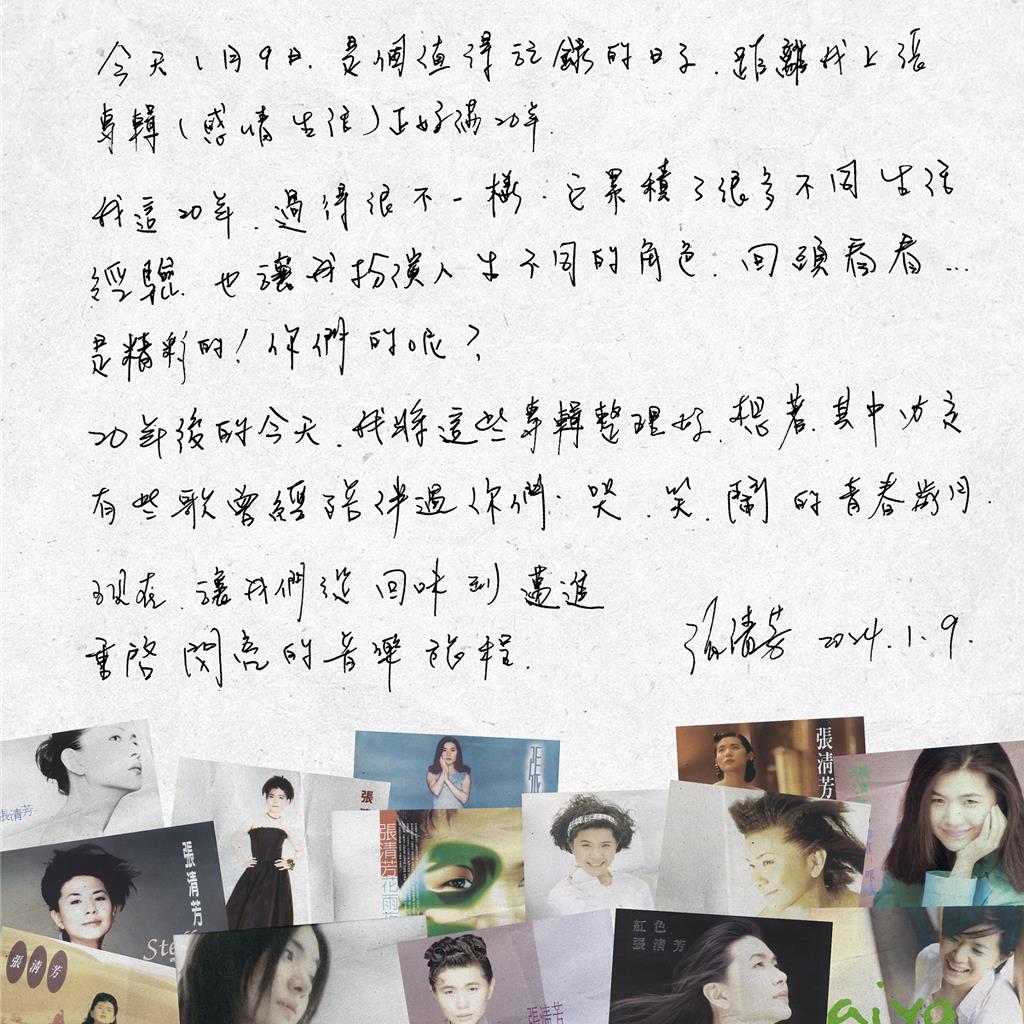 今天1月9日.是個值得記錄的日子.距離我上張
專輯(感情生活)正好滿20年.
我這20年.過得很不一樣.它累積了很多不同生活
經驗.也讓我扮演人生不同的角色.回頭看看...
是精彩的!你們的呢?
20年後的今天.我將這些專輯整理好.想著.其中必定
有些歌曾經陪伴過你們.哭.笑.鬧的青春歲月.
現在.讓我們從回味到邁進
重啓閃亮的音樂旅程.
張清芳 2024.1.9.
張清芳
張
張清芳
張清芳
張清芳
Ste
張清芳花雨
張清芳
張清芳
紅色
張清芳
aiyo